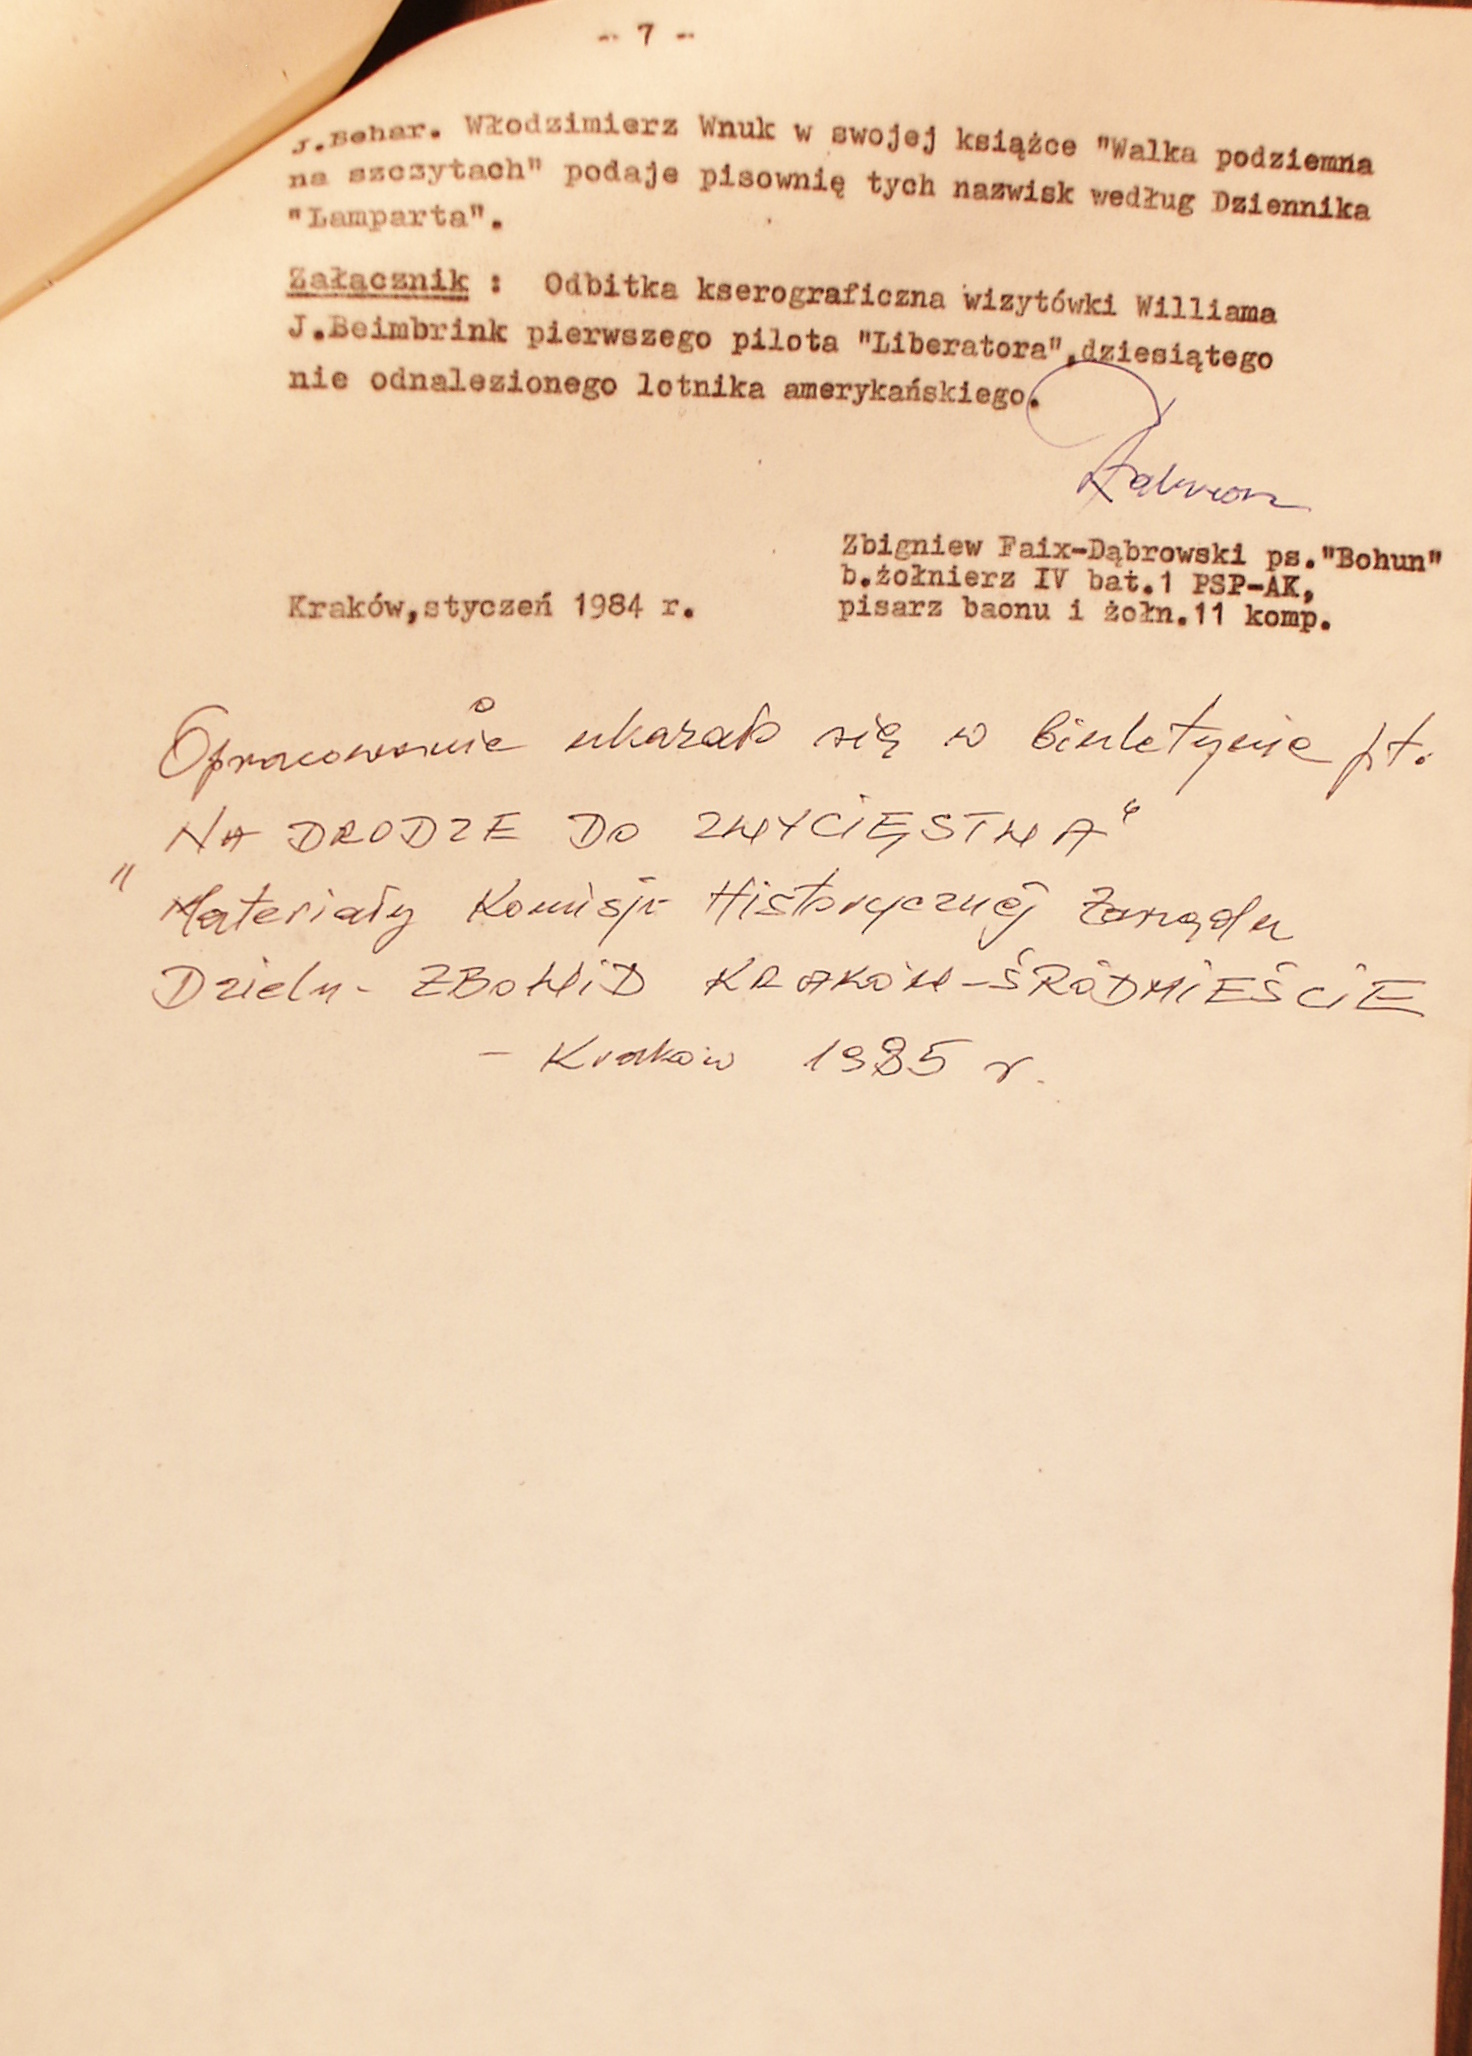 - 7 -
J.Behar. Włodzimierz Wnuk w swojej książce "Walka podziemna
na szczytach" podaje pisownię tych nazwisk według Dziennika
"Lamparta".
Załącznik : Odbitka kserograficzna wizytówki Williama
J.Beimbrink pierwszego pilota "Liberatora",dziesiątego
nie odnalezionego lotnika amerykańskiego.
Zbigniew Faix-Dąbrowski ps."Bohun"
b.żołnierz IV bat.1 PSP-AK,
Kraków,styczeń 1984 r.
pisarz baonu i żołn.11 komp.
Opracowanie ukazało się w biuletynie pt.
NA DRODZE DO ZWYCIĘSTWA"
" Materiały Komisji Historycznej Zarządu
Dzieln- ZBOWiD KRAKÓW-ŚRÓDMIEŚCIE
- Kraków 1985 r.